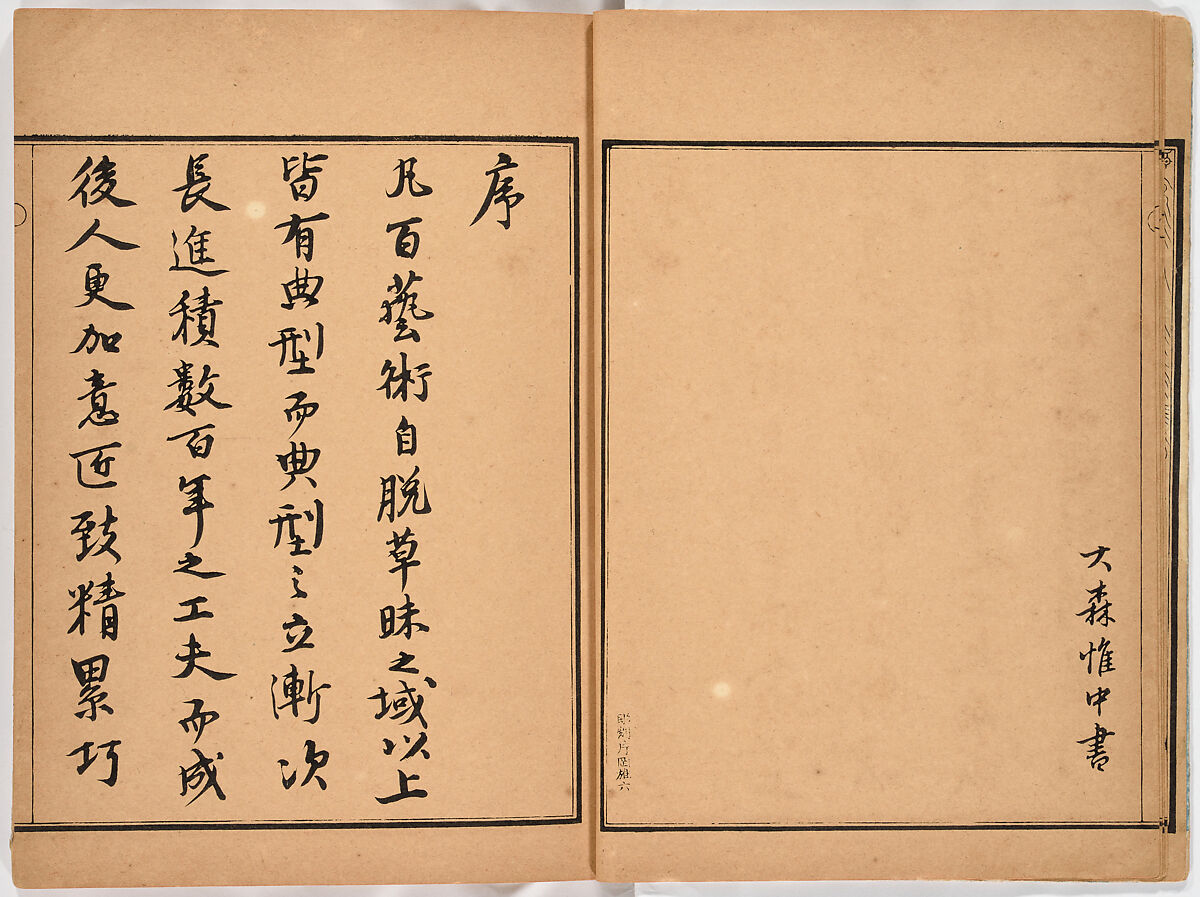 大森惟中書
序
凡百藝術自脱草昧之域以上
皆有典型而典型之立漸次
長進積數百年之工夫而成
後人更加意匠致精累巧